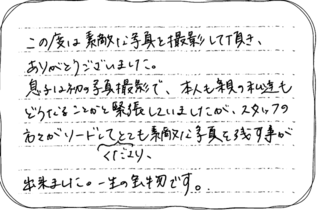 この度は素敵な写真を撮影して頂き、
ありがとうございました。
息子は初の写真撮影で、本人も親の私達も
どうなることかと緊張していましたが、スタッフの
方々がリードしてとても素敵な写真を残す事が
くださり、
出来ました。一生の宝物です。